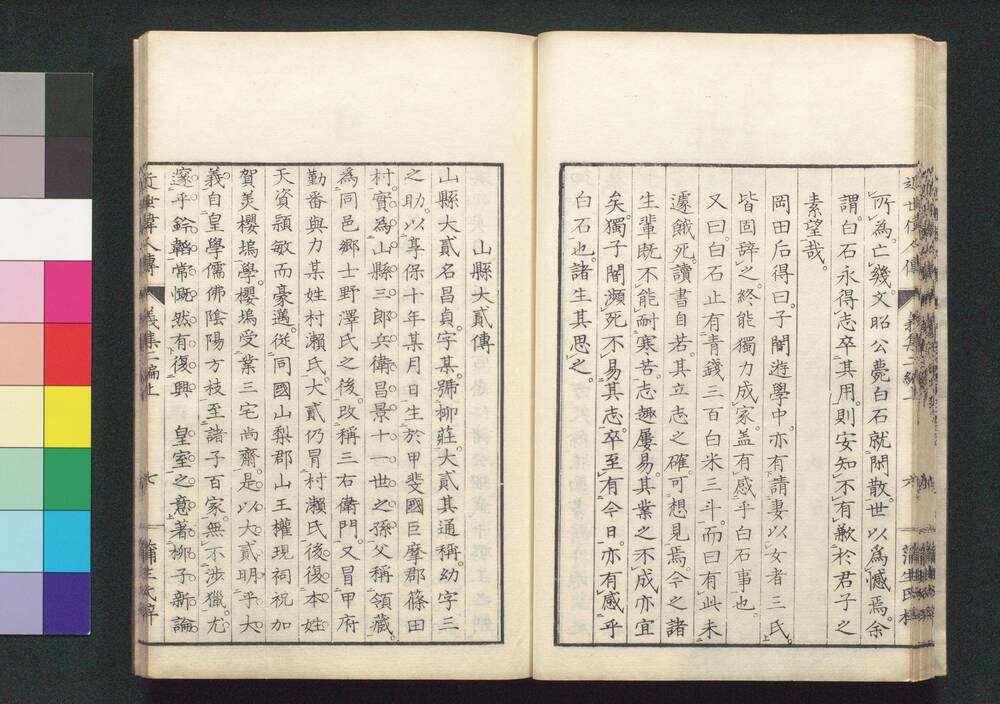 所爲亡幾文昭公薨白石就閒散世以爲憾焉余
謂白石永得志卒其用則安知不有歉於君子之
素望哉
岡田后得曰子闇遊學中亦有請妻以女者三氏
皆固辭之終能獨力成家葢有感乎白石事也
又曰白石止有青錢三百白米三斗而曰有此未
遽餓死讀書自若其立志之確可想見焉今之諸
生輩既不能耐寒苦志趣屢易其業之不成亦宜
矣獨子闇瀕死不易其志卒至有今日亦有感乎
白石也諸生其思之
山縣大貳傳
山縣大貳名昌貞字某號柳莊大貳其通稱幼字三
之助以享保十年某月日生於甲斐國巨摩郡篠田
村實爲山縣三郎兵衛昌景十一世之孫父稱領藏
爲同邑鄉士野澤氏之後改稱三右衛門又冒甲府
勤番與力某姓村瀨氏大貳仍冒村瀨氏後復本姓
天資穎敏而豪邁從同國山梨郡山王權現祠祝加
賀美櫻塢學櫻塢受業三宅尚齋是以大貳明乎大
義自皇學儒佛陰陽方技至諸子百家無不涉獵尤
邃乎鈐韜常慨然有復興 皇室之意著柳子新論
近世偉人傳 義集二編上 七 蒲生氏梓